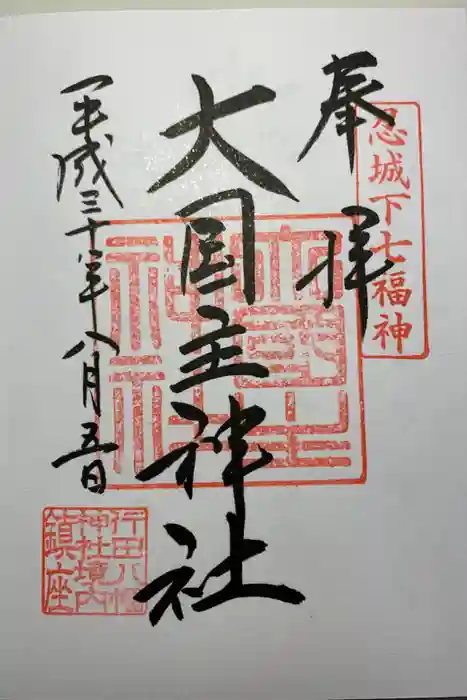 忍城下七福神
奉拝
大国主神社
大國主
神社
平成三十年八月五日
行田八幡
神社境内
鎮座